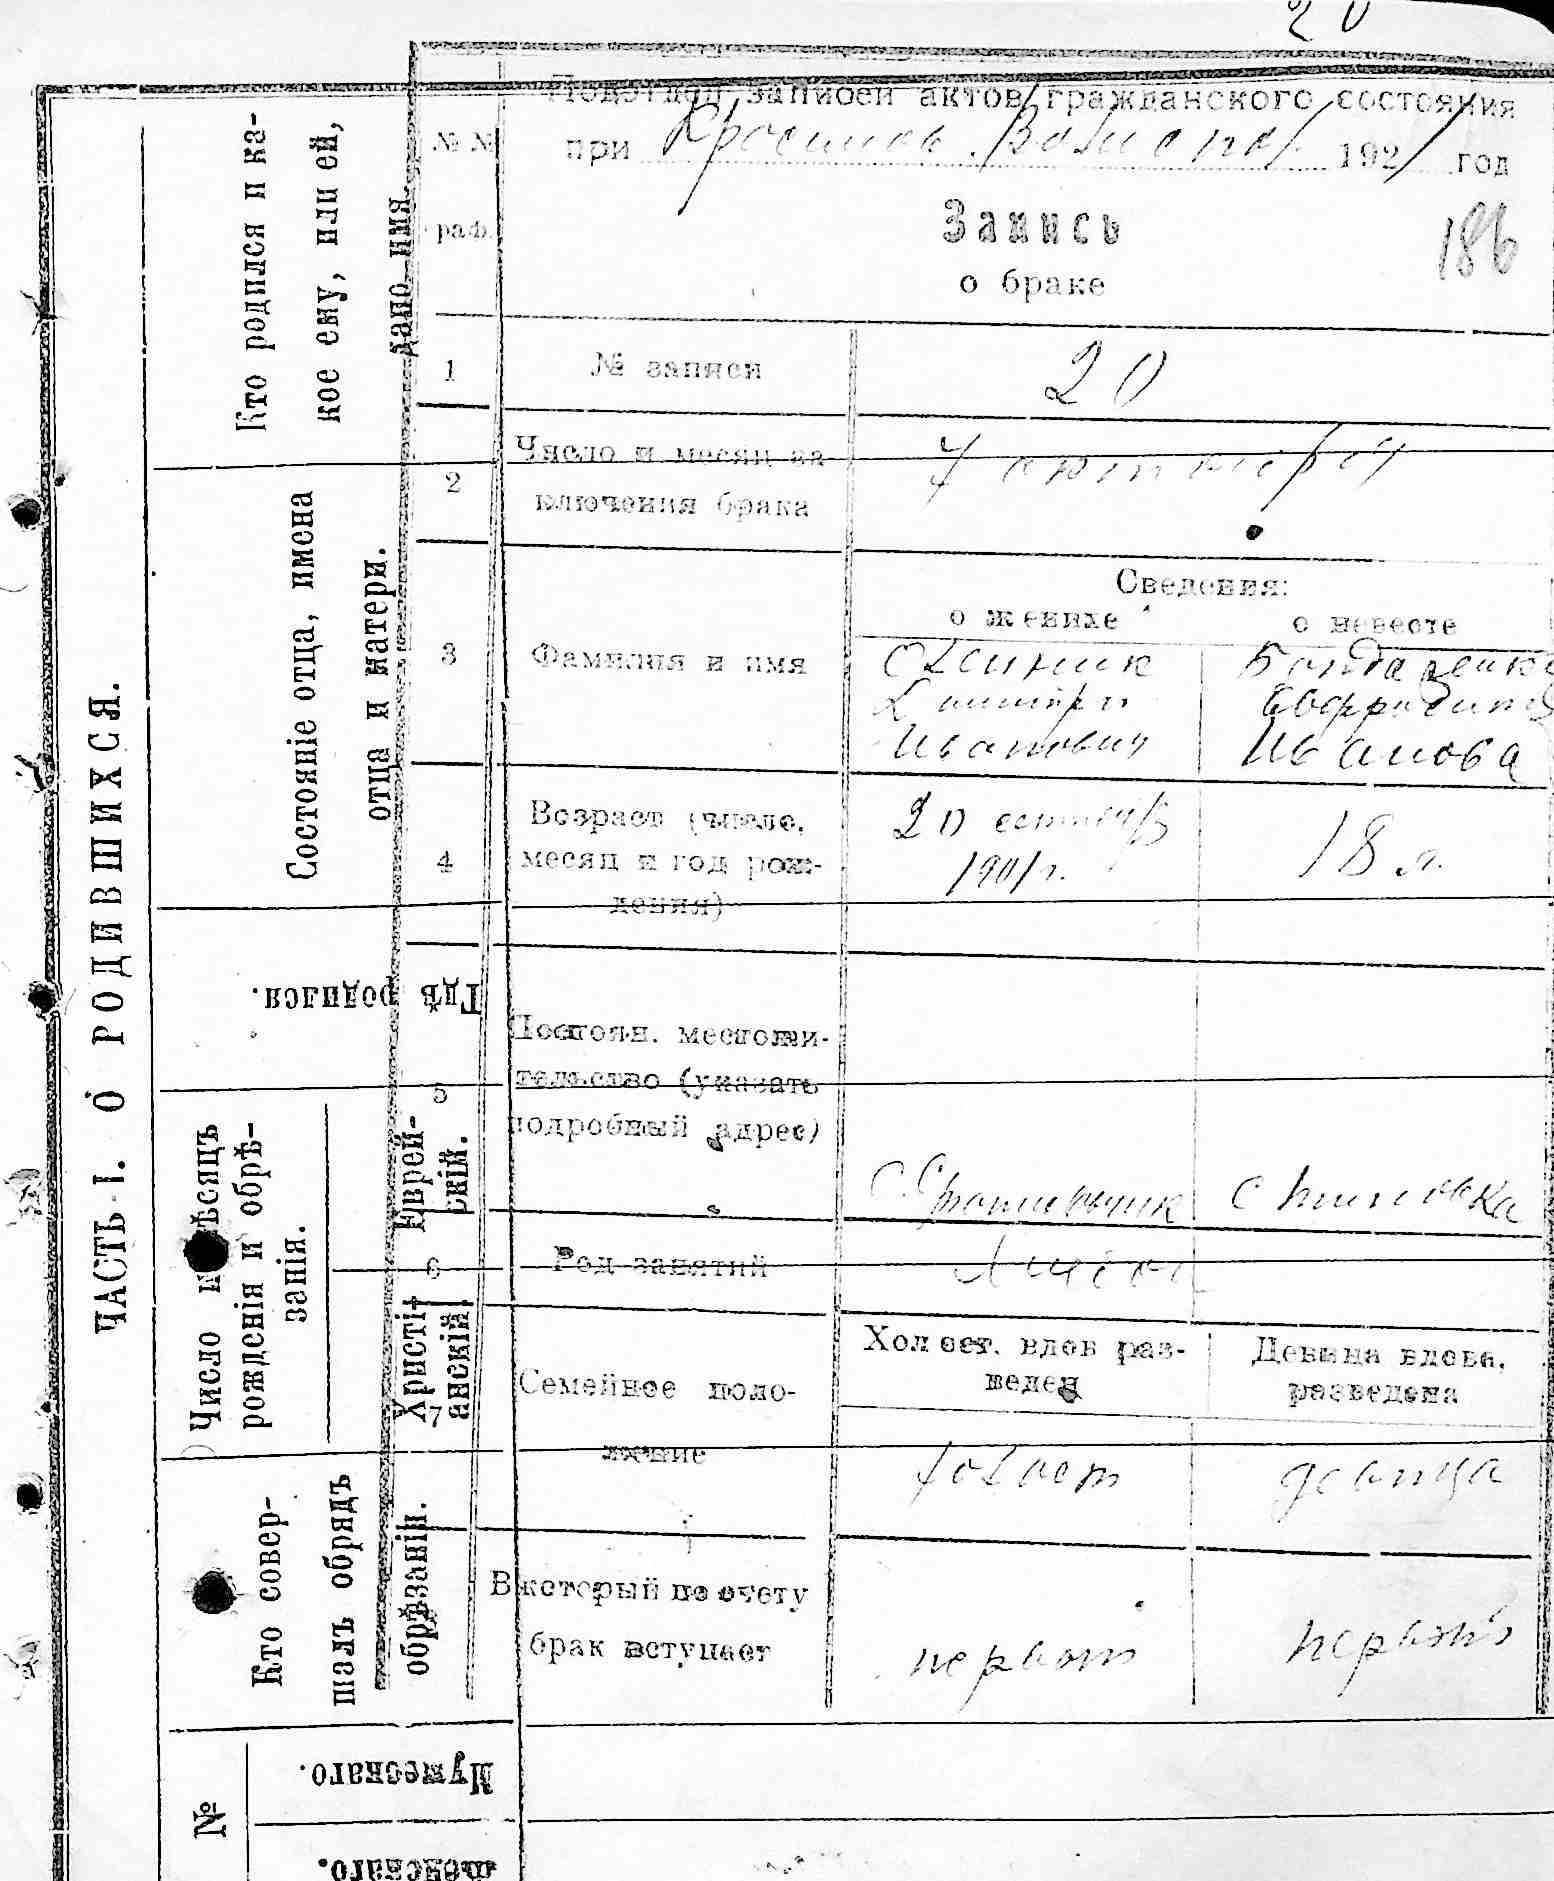 20
Подотдел записей актов гражданского состояния
при 1921 год
№ №
граф.
Запись
о браке
186
1 № записи 20
2 Число и месяц за-
ключения брака 7 октября
Сведения:
о женихе о невесте
3 Фамилия и имя Олейник Бондаренко
Дмитрий
Иванович Иванова
4 Возраст (число,
месяц и год рож-
дения) 20 1901 г. 18 л.
5 Постоян. местожи-
тельство (указать
подробный адрес)
с. с
6 Род занятий
Холост. вдов раз-
веден Девица вдова,
разведена
7 Семейное поло-
жение холост девица
В который по счету
брак вступает первый первый
ЧАСТЬ I. О РОДИВШИХСЯ.
Кто родился и ка-
кое ему, или ей,
дано имя.
Состояніе отца, имена
отца и матери.
Гдѣ родился.
Число и мѣсяцъ
рожденія и обрѣ-
занія.
Еврей-
скій.
Христі-
анскій.
Кто совер-
шалъ обрядъ
обрѣзанія.
№
Мужескаго.
Женскаго.